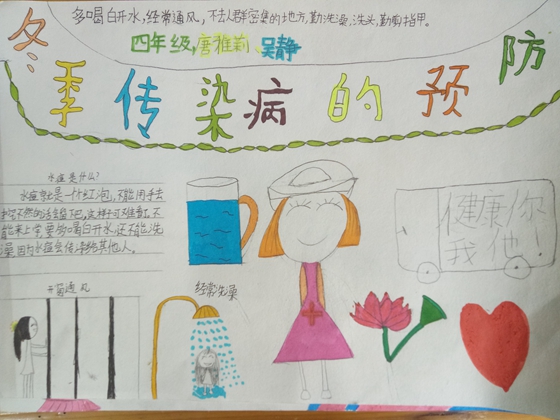 多喝白开水,经常通风,不去人群密集的地方,勤洗澡,洗头,勤剪指甲。
四年级,唐雅莉、吴静
冬季传染病的预防
水痘是什么?
水痘就是一个红泡,不能用手去
能来上学要多喝白开水,还不能洗
澡,因为水痘会传染给其他人。
健康你
我他!
开窗通风
经常洗澡